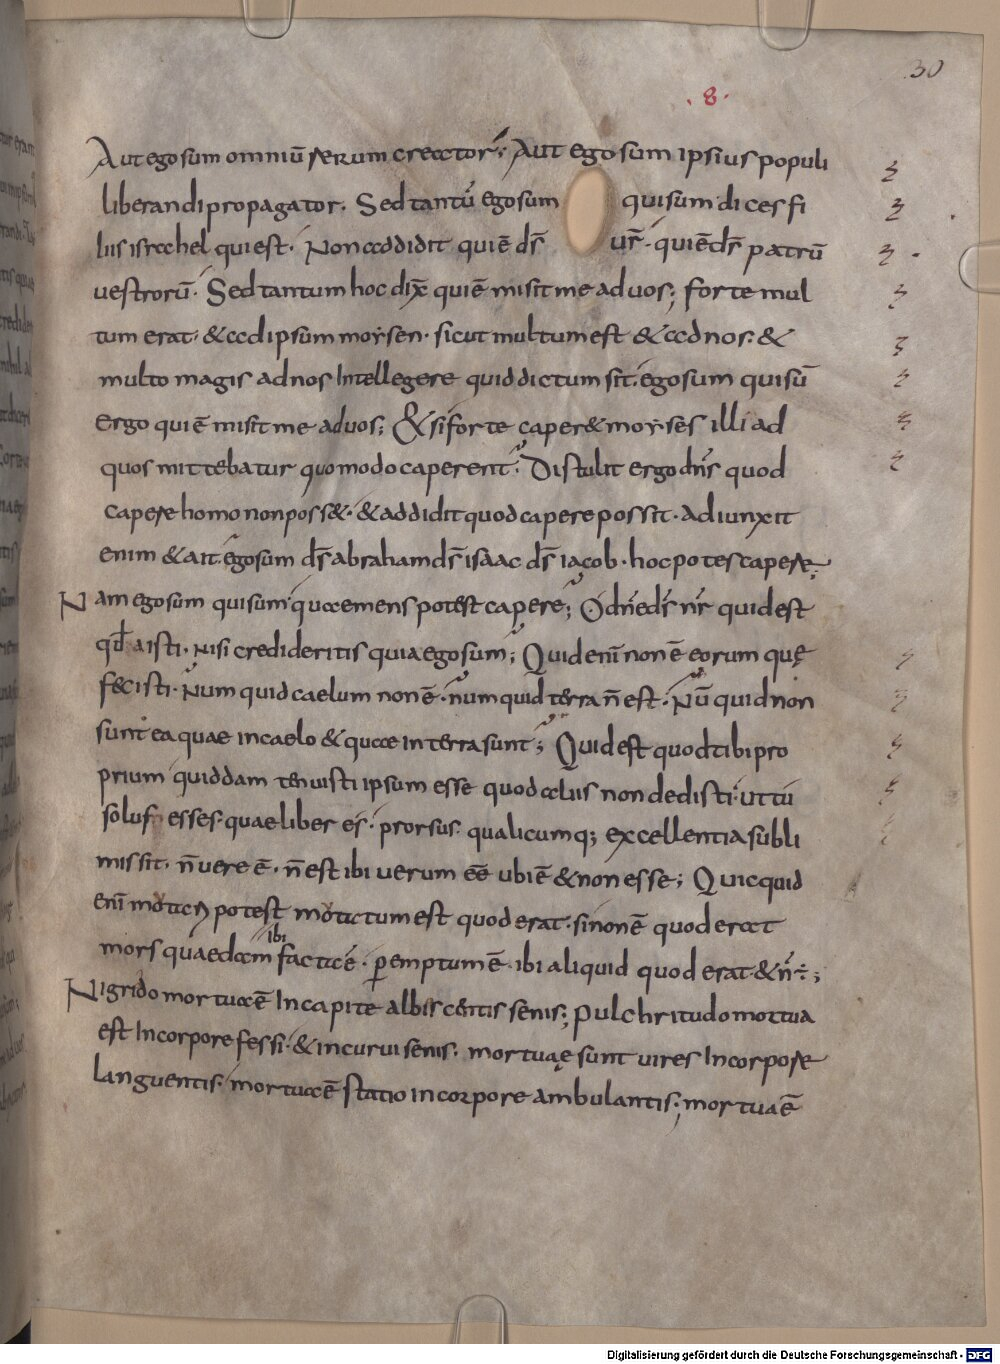 30
.8.
Aut ego sum omniū rerum creator; Aut ego sum ipsius populi
liberandi propagator. Sed tantū egosum quisum dices fi
liis israhel qui est. Non addidit quiē dr̄ ur̄. quiē dr̄ patrū
uestrorū. Sed tantum hoc dix̄ quiē misit me ad uos; forte mul
tum erat. & ad ipsum moẏsen. sicut multum est & ad nos. &
multo magis ad nos Intellegere quid dictum sit. ego sum quisū
ergo quiē misit me ad uos; & si forte caper& moẏses illi ad
quos mittebatur quomodo caperent. Distulit ergo dn̄s quod
capere homo non poss&. & addidit quod capere possit. adiunxit
enim & ait. ego sum ds̄ abraham ds̄ isaac ds̄ iacob. hoc potes capere;
Nam ego sum qui sum quae mens potest capere; O dn̄e ds̄ nr̄ quid est
qd̄ aisti. nisi credideritis quia ego sum; Quid enī non ē eorum quę
fecisti. Num quid caelum non ē. num quid terra n̄ est. Nū quid non
sunt ea quae in caelo & quae in terra sunt; Quid est quod tibi pro
prium quiddam tenuisti ipsum esse quod aliis non dedisti. ut tu
solus esses. quaeliber es. prorsus qualicumq; excellentia subli
mis sit. n̄ uere ē. n̄ est ibi uerum eē ubi ē & non esse; Quicquid
enī potest est quod erat. si non ē quod erat
mors quaedam ibi facta ē. p̄emptum ē. ibi aliquid quod erat & n̄ .÷.;
Nigrido mortua ē In capite albiscentis senis; pulchritudo mortua
est In corpore fessi. & incurui senis. mortuaę sunt uires In corpore
languentis. mortua ē statio in corpore ambulantis; mortua ē
Digitalisierung gefördert durch die Deutsche Forschungsgemeinschaft - DFG